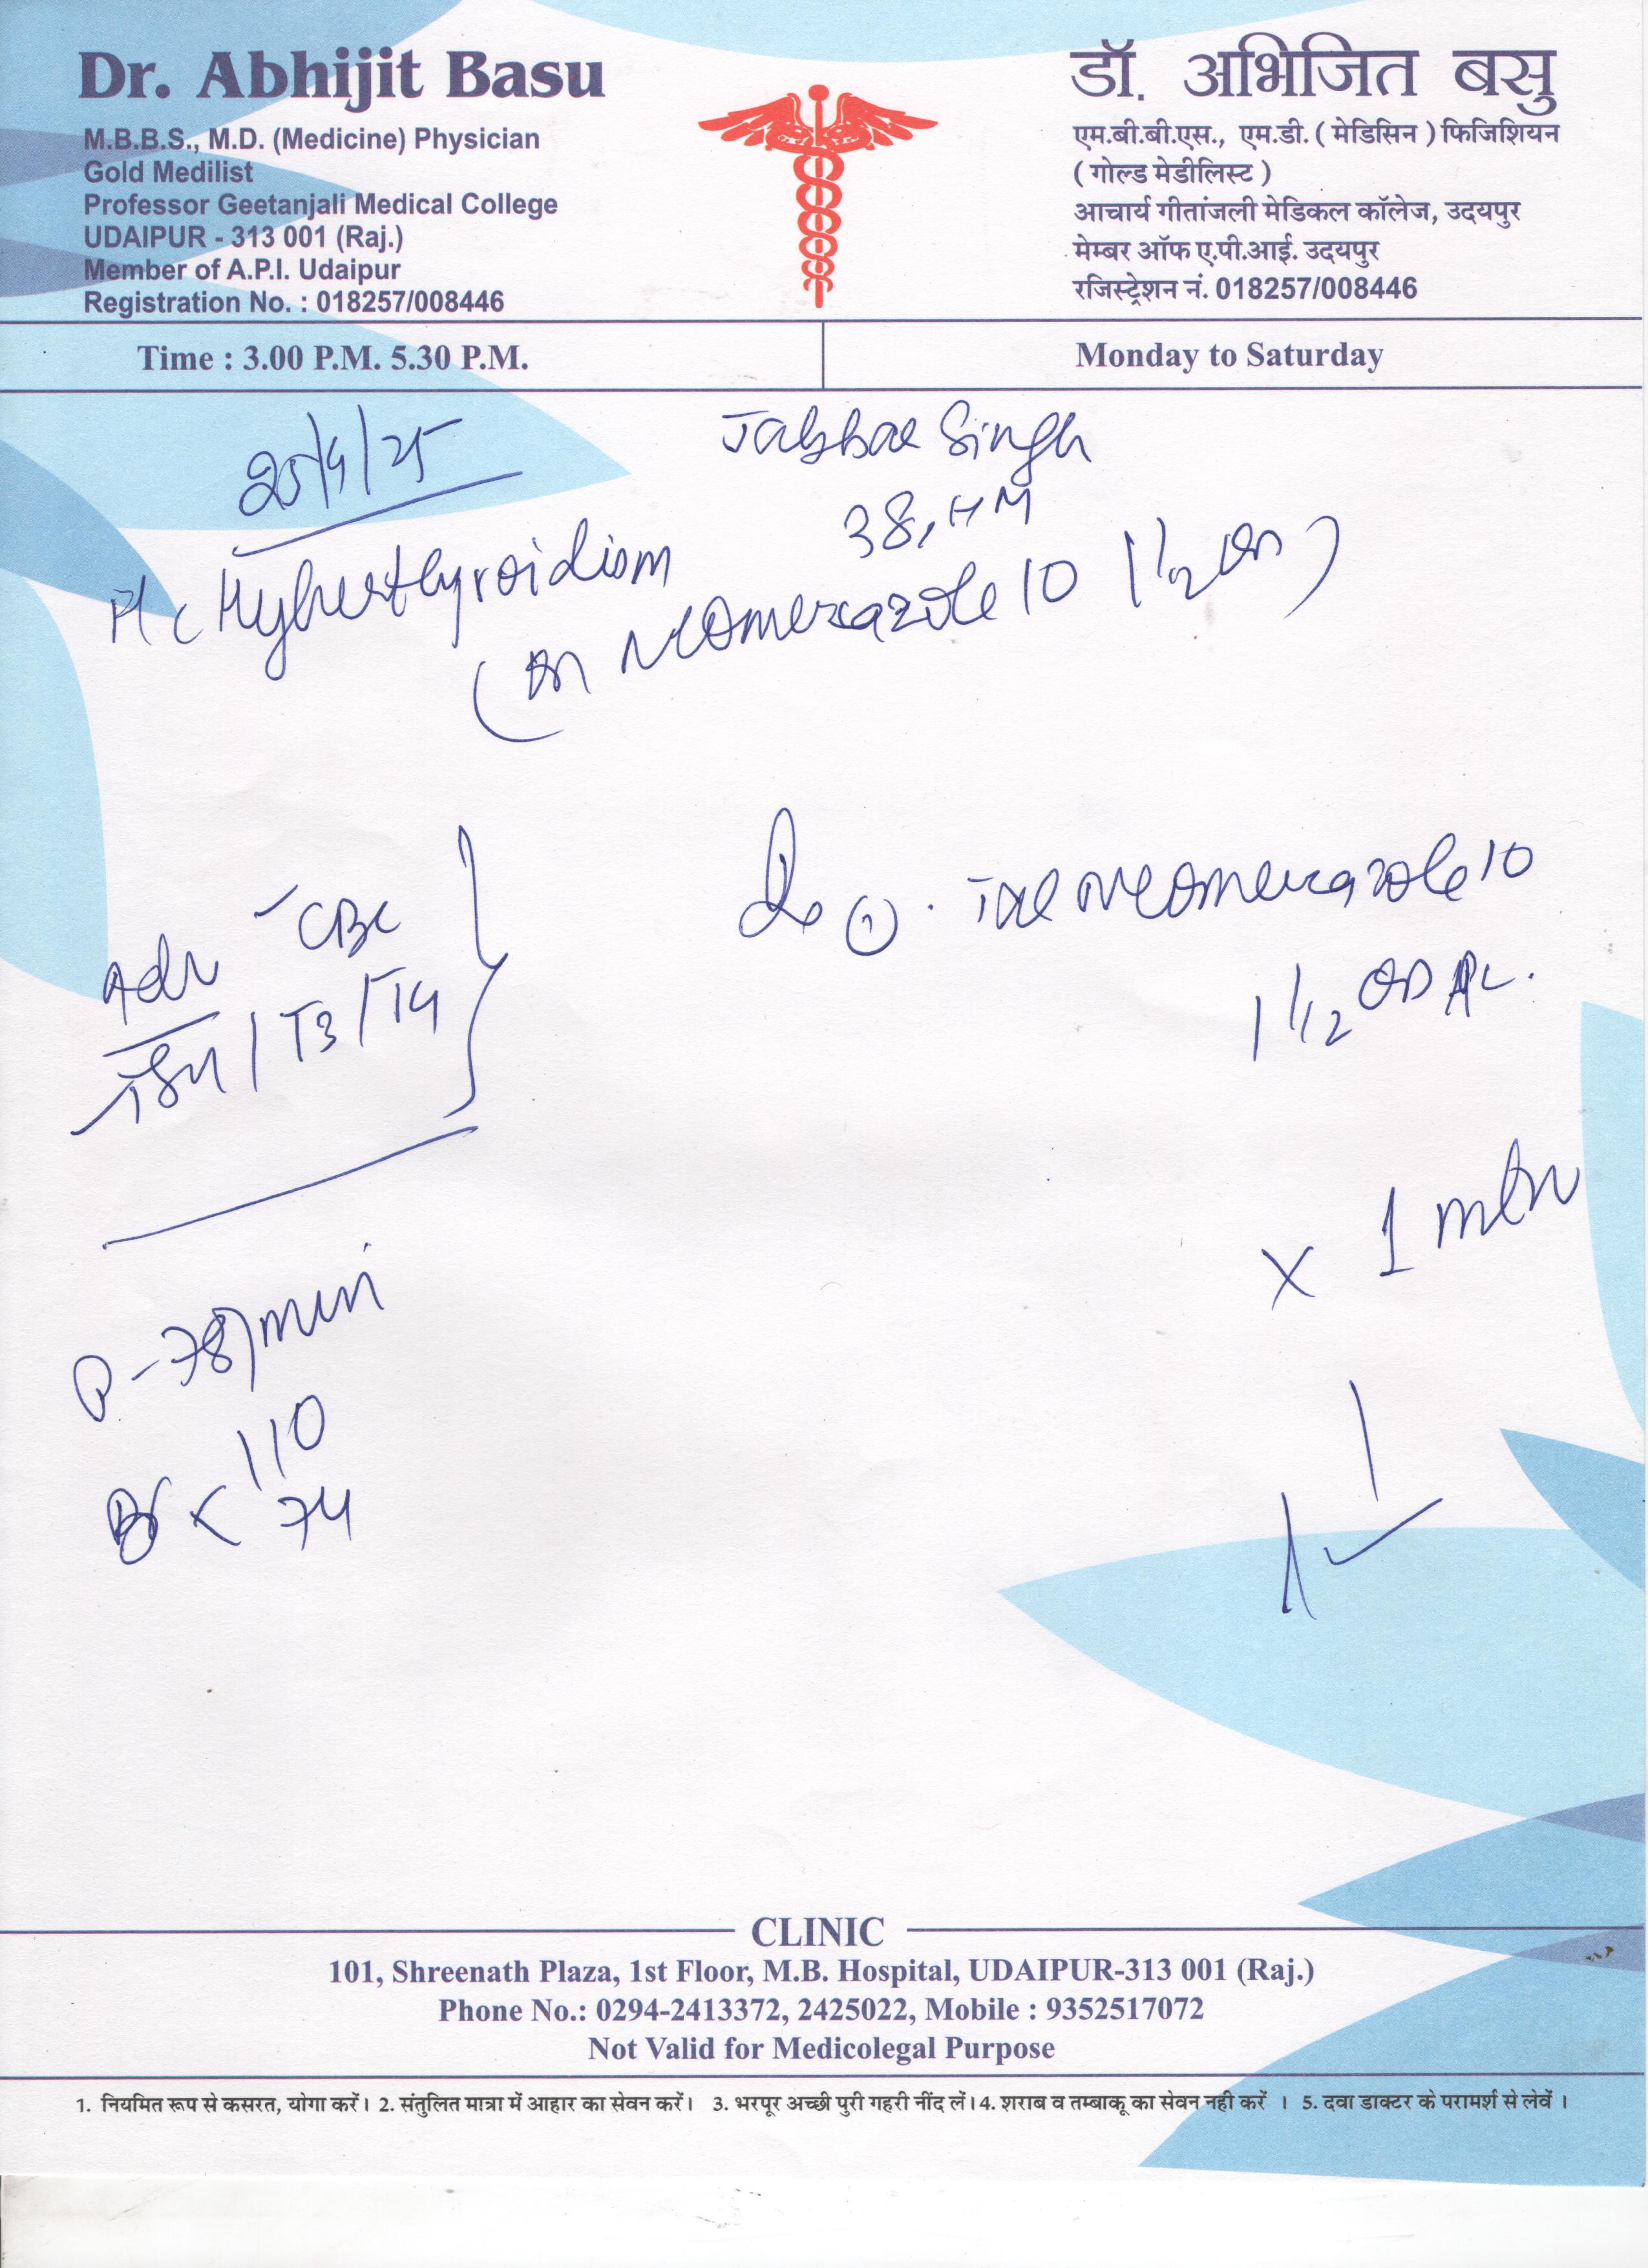 Dr. Abhijit Basu
M.B.B.S., M.D. (Medicine) Physician
Gold Medilist
Professor Geetanjali Medical College
UDAIPUR - 313 001 (Raj.)
Member of A.P.I. Udaipur
Registration No. : 018257/008446
डॉ. अभिजित बसु
एम.बी.बी.एस., एम.डी. ( मेडिसिन ) फिजिशियन
( गोल्ड मेडीलिस्ट )
आचार्य गीतांजली मेडिकल कॉलेज, उदयपुर
मेम्बर ऑफ ए.पी.आई. उदयपुर
रजिस्ट्रेशन नं. 018257/008446
Time : 3.00 P.M. 5.30 P.M.
Monday to Saturday
Singh
38, HM
Hyperthyroidism
(on Neomercazole 10 1 1/2 OD)
Adv - CBC
TSH / T3 / T4
Rx ① . Tab Neomercazole 10
1 1/2 OD AC.
x 1 mth
P - 78/min
BP < 110
74
CLINIC
101, Shreenath Plaza, 1st Floor, M.B. Hospital, UDAIPUR-313 001 (Raj.)
Phone No.: 0294-2413372, 2425022, Mobile : 9352517072
Not Valid for Medicolegal Purpose
1. नियमित रूप से कसरत, योगा करें। 2. संतुलित मात्रा में आहार का सेवन करें। 3. भरपूर अच्छी पुरी गहरी नींद लें। 4. शराब व तम्बाकू का सेवन नही करें । 5. दवा डाक्टर के परामर्श से लेवें ।